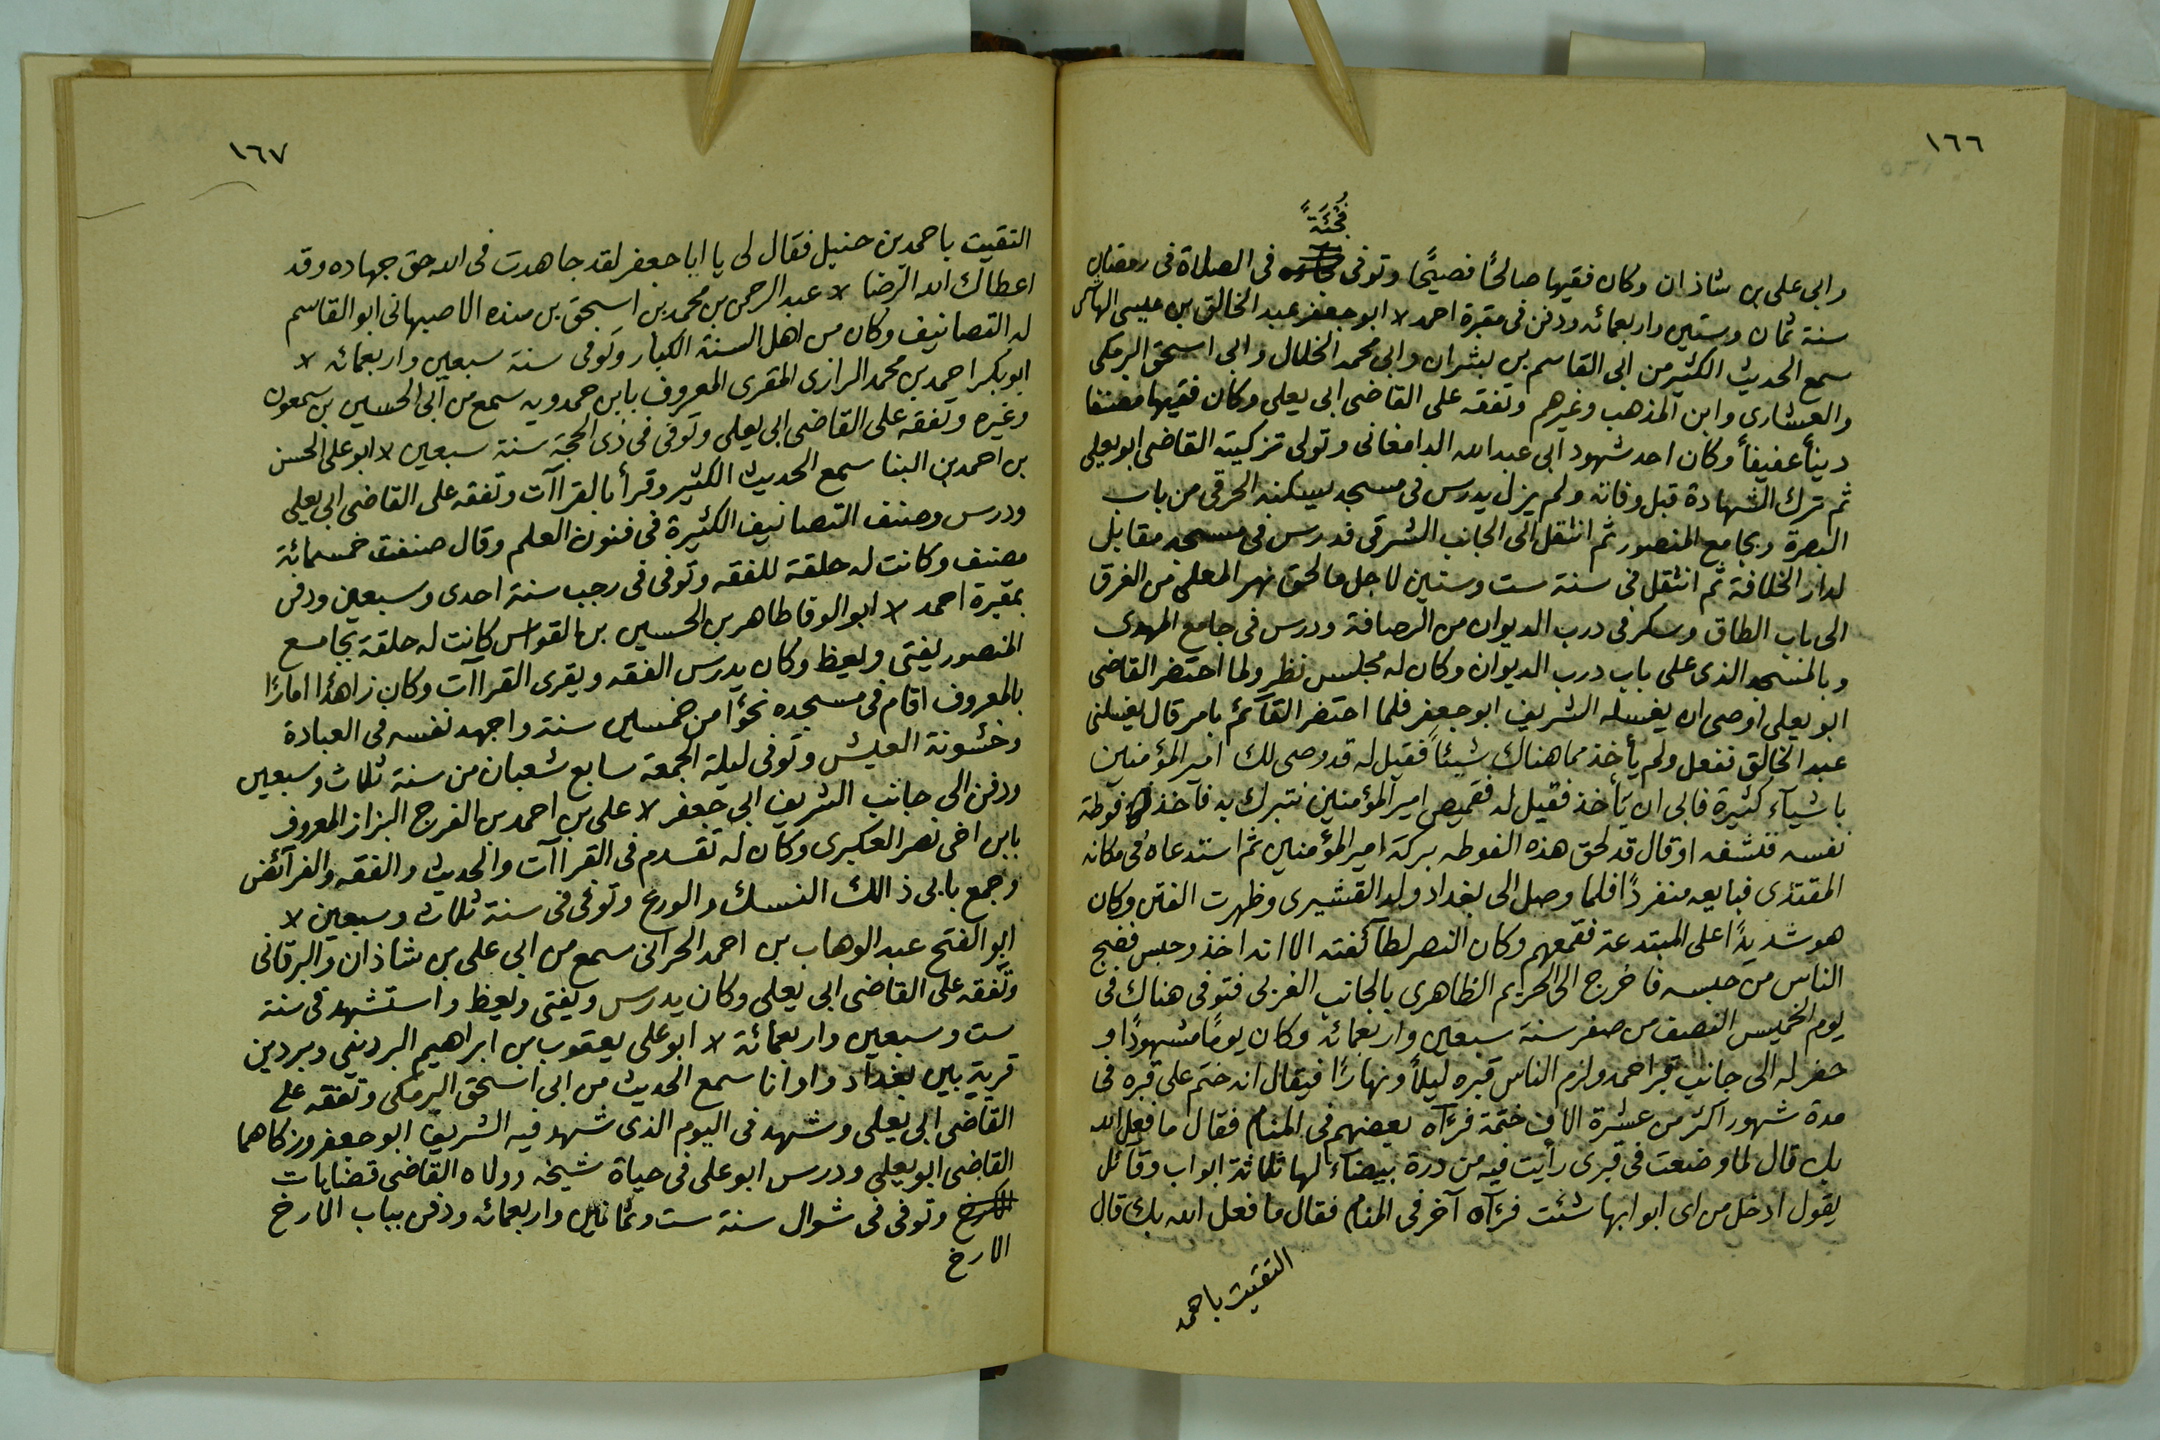 ١٦٦
فُجْئَةً
وابى على بن شاذان وكان فقيها صالحًا فصيحًا وتوفى في الصلاة في رمضان
سنة ثمان وستين واربعمائه ودفن في مقبرة احمد لا ابو جعفر عبد الخالق بن عيسى الهاشمى
سمع الحديث الكثير من ابى القاسم بن بشران وابى محمد الخلال وابى اسحق البرمكى
والعشارى وابن المذهب وغيرهم وتفقه على القاضى ابى يعلى وكان فقيها مصنفا
دينأ عفيفأ وكان احد شهود ابى عبد الله الدامغانى وتولى تزكيته القاضى ابو يعلى
ثم ترك الشهادة قبل وفاته ولم يزل يدرس في مسجد بسكنه الخرقى من باب
البصرة وبجامع المنصور ثم انتقل الى الجانب الشرقى فدرس في مسجد مقابل
لدار الخلافة ثم انتقل فى سنة ست وستين لاجل ما لحق نهر المعلى من الغرق
الى باب الطاق وسكن فى درب الديوان من الرصافة ودرس فى جامع المهدى
وبالمسجد الذى على باب درب الديوان وكان له مجلس نظر ولما احتضر القاضى
ابو يعلى اوصى ان يغسله الشريف ابو جعفر فلما احتضر القآئم بامر قال يغسلنى
عبد الخالق ففعل ولم يأخذ مما هناك شيئاً فقيل له قد وصى لك امير المؤمنين
باشيآء كثيرة فابى ان يأخذ فقيل له فقميص امير المؤمنين نتبرك به فآخذ فوطة
نفسه فنشفه اوقال قد لحق هذه الفوطه بركة امير المؤمنين ثم استدعاه فى مكانه
المقتدى فبايعه منفردًا فلما وصل الى بغداد ولد القشيرى وظهرت الفتن وكان
هو شديدًا على المبتدعة فقمعهم وكان النصر لطآئفته الا انه اخذ وحبس فضج
الناس من حبسه فاخرج الى الحريم الظاهرى بالجانب الغربى فتوفى هناك فى
يوم الخميس النصف من صفر سنة سبعين واربعمائه وكان يومًا مشهودًا و
حفر له الى جانب قبر احمد ولزم الناس قبره ليلاً ونهارًا فيقال انه ختم على قبره فى
مدة شهور اكثر من عشرة الاف ختمة فرءآه بعضهم فى المنام فقال ما فعل الله
بك قال لما وضعت فى قبرى رأيت فيه من درة بيضاء لها ثلاثة ابواب وقائل
يقول ادخل من اى ابوابها شئت فرءآه آخر فى المنام فقال ما فعل الله بك قال
التقيت باحمد
١٦٧
التقيت باحمد بن حنبل فقال لى يا ابا جعفر لقد جاهدت فى الله حق جهاده وقد
اعطاك الله الرضا لا عبد الرحمن بن محمد بن اسحق بن منده الاصبهانى ابو القاسم
له التصانيف وكان من اهل السنة الكبار وتوفى سنة سبعين واربعمائه لا
ابو بكر احمد بن محمد الرازى المقرى المعروف بابن حمدويه سمع من ابى الحسين بن سمعون
وغيره وتفقه على القاضى ابى يعلى وتوفى فى ذى الحجة سنة سبعين لا ابو على الحسن
بن احمد بن البنا سمع الحديث الكثير وقرأ بالقراآت وتفقه على القاضى ابى يعلى
ودرس وصنف التصانيف الكثيرة فى فنون العلم وقال صنفت خمسمائة
مصنف وكانت له حلقة للفقه وتوفى فى رجب سنة احدى وسبعين ودفن
بمقبرة احمد لا ابو الوفا طاهر بن الحسين بن القواس كانت له حلقة بجامع
المنصور يفتى ويعظ وكان يدرس الفقه ويقرى القراآت وكان زاهدًا امارًا
بالمعروف اقام فى مسجده نحوًا من خمسين سنة واجهد نفسه فى العبادة
وخشونة العيش وتوفى ليلة الجمعة سابع شعبان من سنة ثلاث وسبعين
ودفن الى جانب الشريف ابى جعفر لا على بن احمد بن الفرج البزاز المعروف
بابن اخى نصر العكبرى وكان له تقدم فى القراآت والحديث والفقه والفرآئض
وجمع بابى ذالك النسك والورع وتوفى فى سنة ثلاث وسبعين لا
ابو الفتح عبد الوهاب بن احمد الحرانى سمع من ابى على بن شاذان والبرقانى
وتفقه على القاضى ابى يعلى وكان يدرس ويفتى ويعظ واستشهد فى سنة
ست وسبعين واربعمائة لا ابو على يعقوب بن ابراهيم البردينى وبردين
قرية بين بغداد واوانا سمع الحديث من ابى اسحق البرمكى وتفقه على
القاضى ابى يعلى وشهد فى اليوم الذى شهد فيه الشريف ابو جعفر وزكاهما
القاضى ابو يعلى ودرس ابو على فى حياة شيخه وولاه القاضى قضابات
وتوفى فى شوال سنة ست وثمانين واربعمائه ودفن بباب الارخ
الارخ